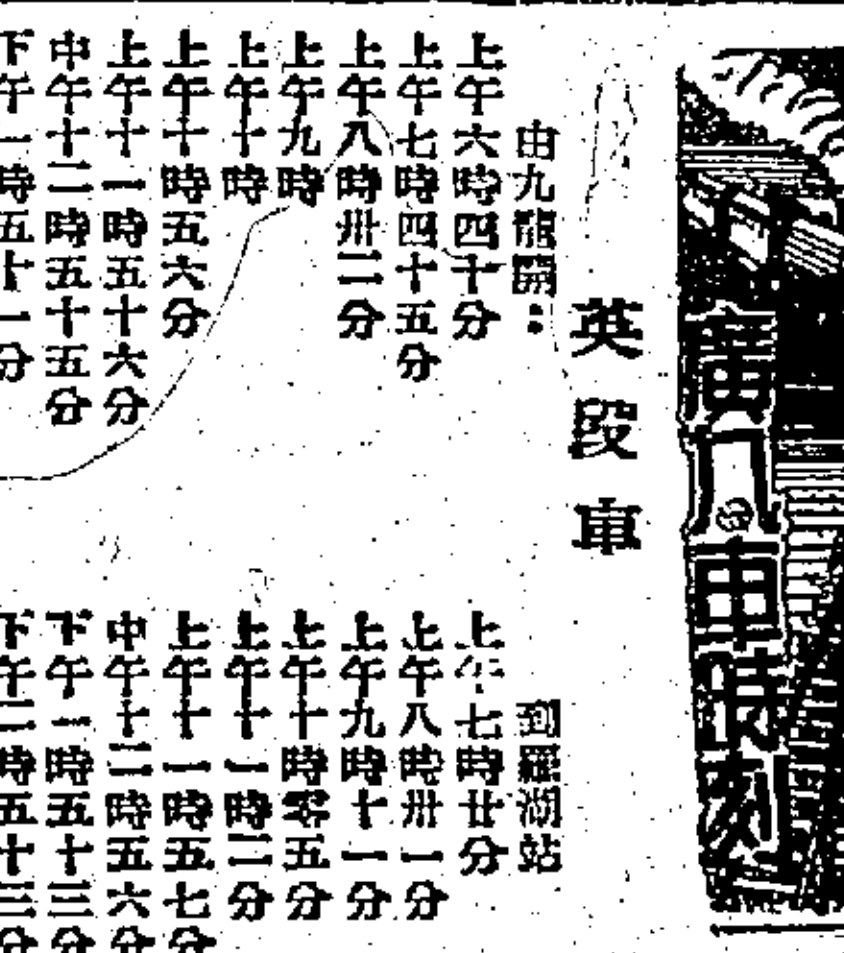 廣九車時刻
英段車
由九龍開：
上午六時四十分
上午七時四十五分
上午八時卅二分
上午九時
上午十時
上午十時五六分
上午十一時五十六分
中午十二時五十五分
下午一時五十一分
到羅湖站
上午七時廿分
上午八時卅一分
上午九時十一分
上午十時零五分
上午十一時二分
上午十一時五七分
中午十二時五六分
下午一時五十三分
下午二時五十三分